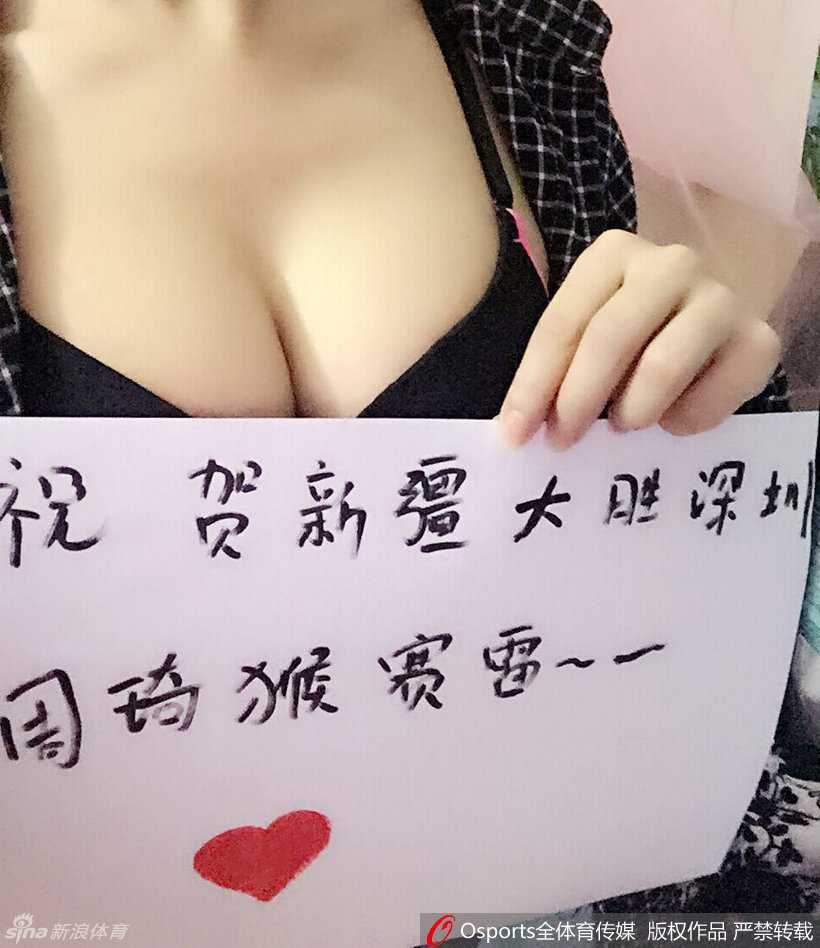 祝 贺新疆大胜深圳
周琦猴赛雷~~
sina新浪体育
Osports全体育传媒 版权作品 严禁转载